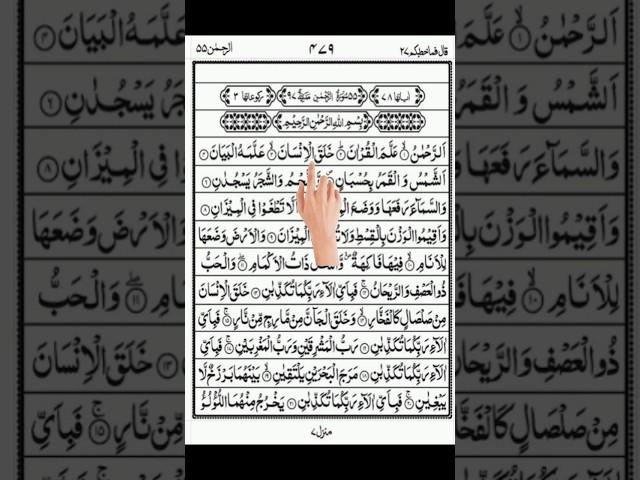 قال فماخطبكم ٢٧ ۴۷۹ الرحمٰن ٥٥
اٰیاتها ٧٨ ٥٥ سُوْرَةُ الرَّحْمٰنِ مَدَنِيَّةٌ ٩٧ رکوعاتها ٣
بِسْمِ اللهِ الرَّحْمٰنِ الرَّحِيْمِ
اَلرَّحْمٰنُ ۙ‏١ عَلَّمَ الْقُرْاٰنَ ۗ‏٢ خَلَقَ الْاِنْسَانَ ۙ‏٣ عَلَّمَهُ الْبَيَانَ ٤
اَلشَّمْسُ وَ الْقَمَرُ بِحُسْبَانٍ وَّالشَّجَرُ يَسْجُدٰنِ ٦
وَالسَّمَآءَ رَفَعَهَا وَوَضَعَ اَلَّا تَطْغَوْا فِي الْمِيْزَانِ ٨
وَاَقِيْمُوا الْوَزْنَ بِالْقِسْطِ وَلَا الْمِيْزَانَ ٩ وَالْاَرْضَ وَضَعَهَا
لِلْاَنَامِ ۙ‏١٠ فِيْهَا فَاكِهَةٌ ذَاتُ الْاَكْمَامِ ۖ‏١١ وَالْحَبُّ
ذُو الْعَصْفِ وَالرَّيْحَانُ ۚ‏١٢ فَبِاَيِّ اٰلَآءِ رَبِّكُمَا تُكَذِّبٰنِ ١٣ خَلَقَ الْاِنْسَانَ
مِنْ صَلْصَالٍ كَالْفَخَّارِ ۙ‏١٤ وَخَلَقَ الْجَآنَّ مِنْ مَّارِجٍ مِّنْ نَّارٍ ۚ‏١٥ فَبِاَيِّ
اٰلَآءِ رَبِّكُمَا تُكَذِّبٰنِ ١٦ رَبُّ الْمَشْرِقَيْنِ وَرَبُّ الْمَغْرِبَيْنِ ۚ‏١٧ فَبِاَيِّ
اٰلَآءِ رَبِّكُمَا تُكَذِّبٰنِ ١٨ مَرَجَ الْبَحْرَيْنِ يَلْتَقِيٰنِ ۙ‏١٩ بَيْنَهُمَا بَرْزَخٌ لَّا
يَبْغِيٰنِ ۚ‏٢٠ فَبِاَيِّ اٰلَآءِ رَبِّكُمَا تُكَذِّبٰنِ ٢١ يَخْرُجُ مِنْهُمَا اللُّؤْلُؤُ
منزل ٧